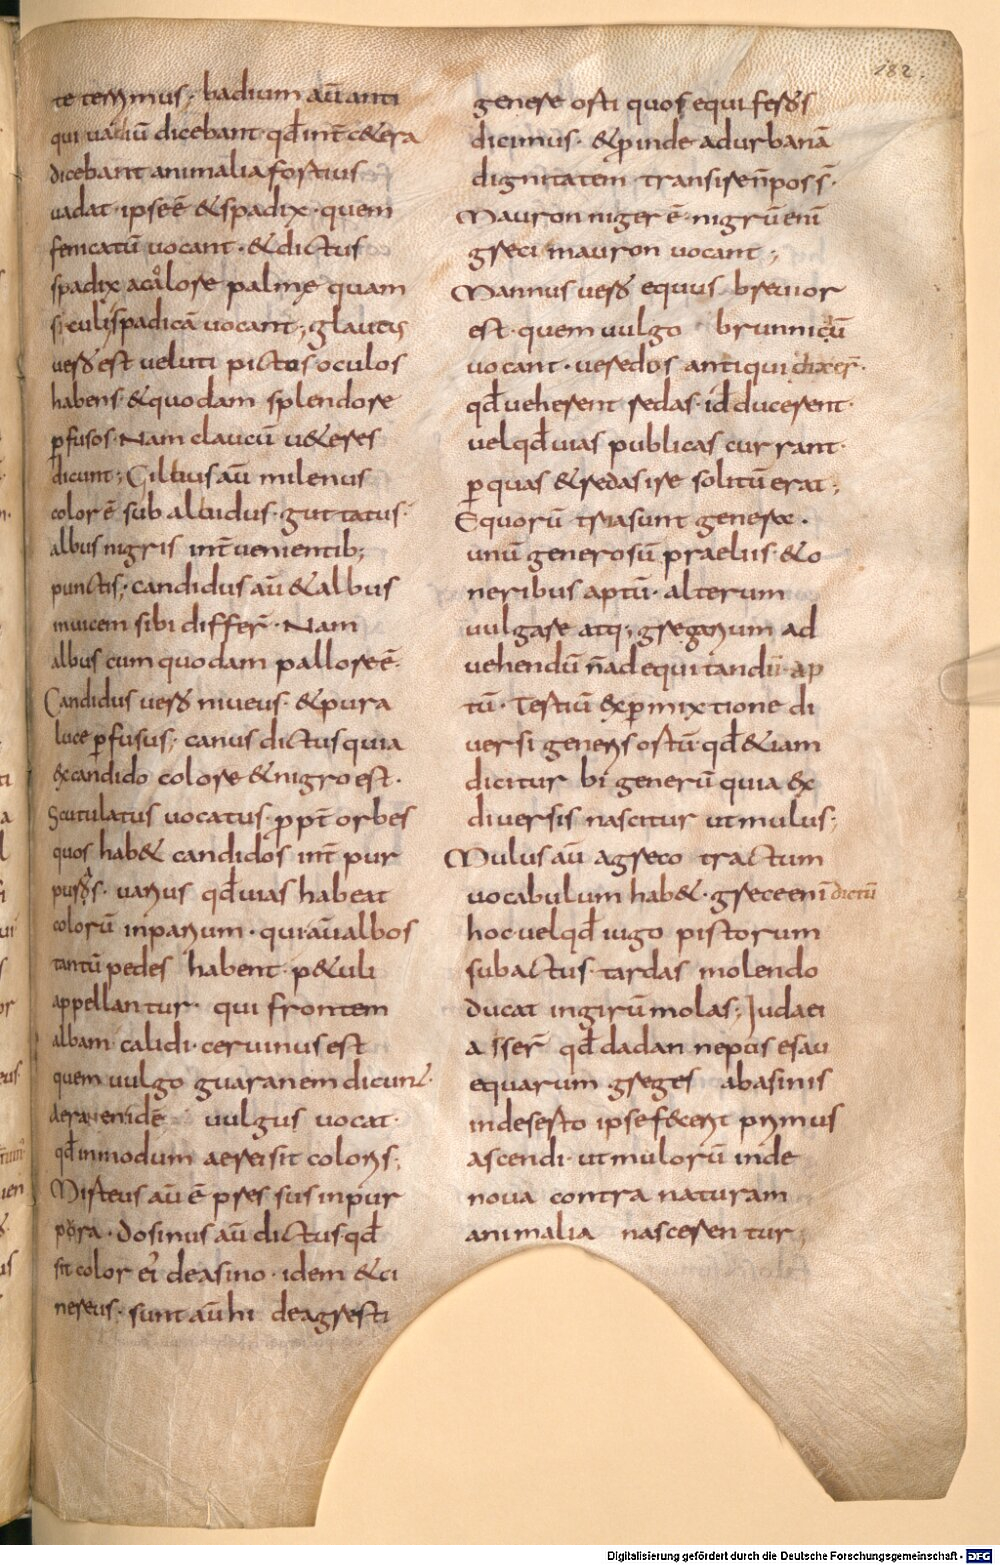 te terrimus; badium aū anti
qui vadiū dicebant qđ int̄ c&era
dicebant animalia fortius
vadat · ipse ē & spadix · quem
fenicatū vocant · & dictus
spadix a colore palmę quam
siculi spadicā vocant; glaucus
verƍ est veluti pictos oculos
habens & quodam splendore
ꝑfusos · Nam claucū v&eres
dicunt; Cilbus aū milenus
color ē sub albidus · guttatus ·
albus nigris int̄ venientib;
punctis; candidus aū & albus
invicem sibi differt̄ · Nam
albus cum quodam pallore ē ·
Candidus verƍ niveus · & pura
luce ꝑfusus; canus dictus quia
ex candido colore & nigro est ·
Scutulatus vocatus ꝓpt̄ orbes
quos hab& candidos int̄ pur
varius qđ vias habeat
colorū inparium · qui aū albos
tantū pedes habent · p&uli
appellantur · qui frontem
albam calidi · cervinus est
quem vulgo guaranem dicunt ·
vulgus vocat ·
qđ in modum aerei sit coloris;
Misteus aū ē
dosinus aū dictus qđ
sit color ei̅ de asino · idem & ci
nereus · sunt aū hi de agresti
genere orti quos equiferƍs
dicimus · & ꝓinde ad urbanā
dignitatem transire n̄ poss̄ ·
Mauron niger ē · nigrū enī
greci mauron vocant;
Mannus verƍ equus brevior
est · quem vulgo brunnicū
vocant · veredos antiqui dixer̄ ·
qđ veherent redas · id̄ ducerent ·
vel qđ vias publicas currant ·
ꝑ quas & redas ire solitū erat;
Equorū tria sunt genera ·
unū generosū praeliis & o
neribus aptū · alterum
vulgare atq; gregarium ad
vehendū n̄ ad equitandū ap
tū · Tertiū ex ꝑmixtione di
versi generis ortū · qđ & iam
dicitur bigenerū quia ex
diversis nascitur ut mulus;
Mulus aū a greco tractum
vocabulum hab& · grece enī dictū
hoc · vel qđ iugo pistorum
subactus · tardas molendo
ducat in girū molas; Judaei
a sser̄ qđ dadan nepus esau
equarum greges abasinis
in deserto ipse fecerit primus
ascendi · ut mulorū inde
nova contra naturam
animalia nascerentur;
182.
Digitalisierung gefördert durch die Deutsche Forschungsgemeinschaft - DFG